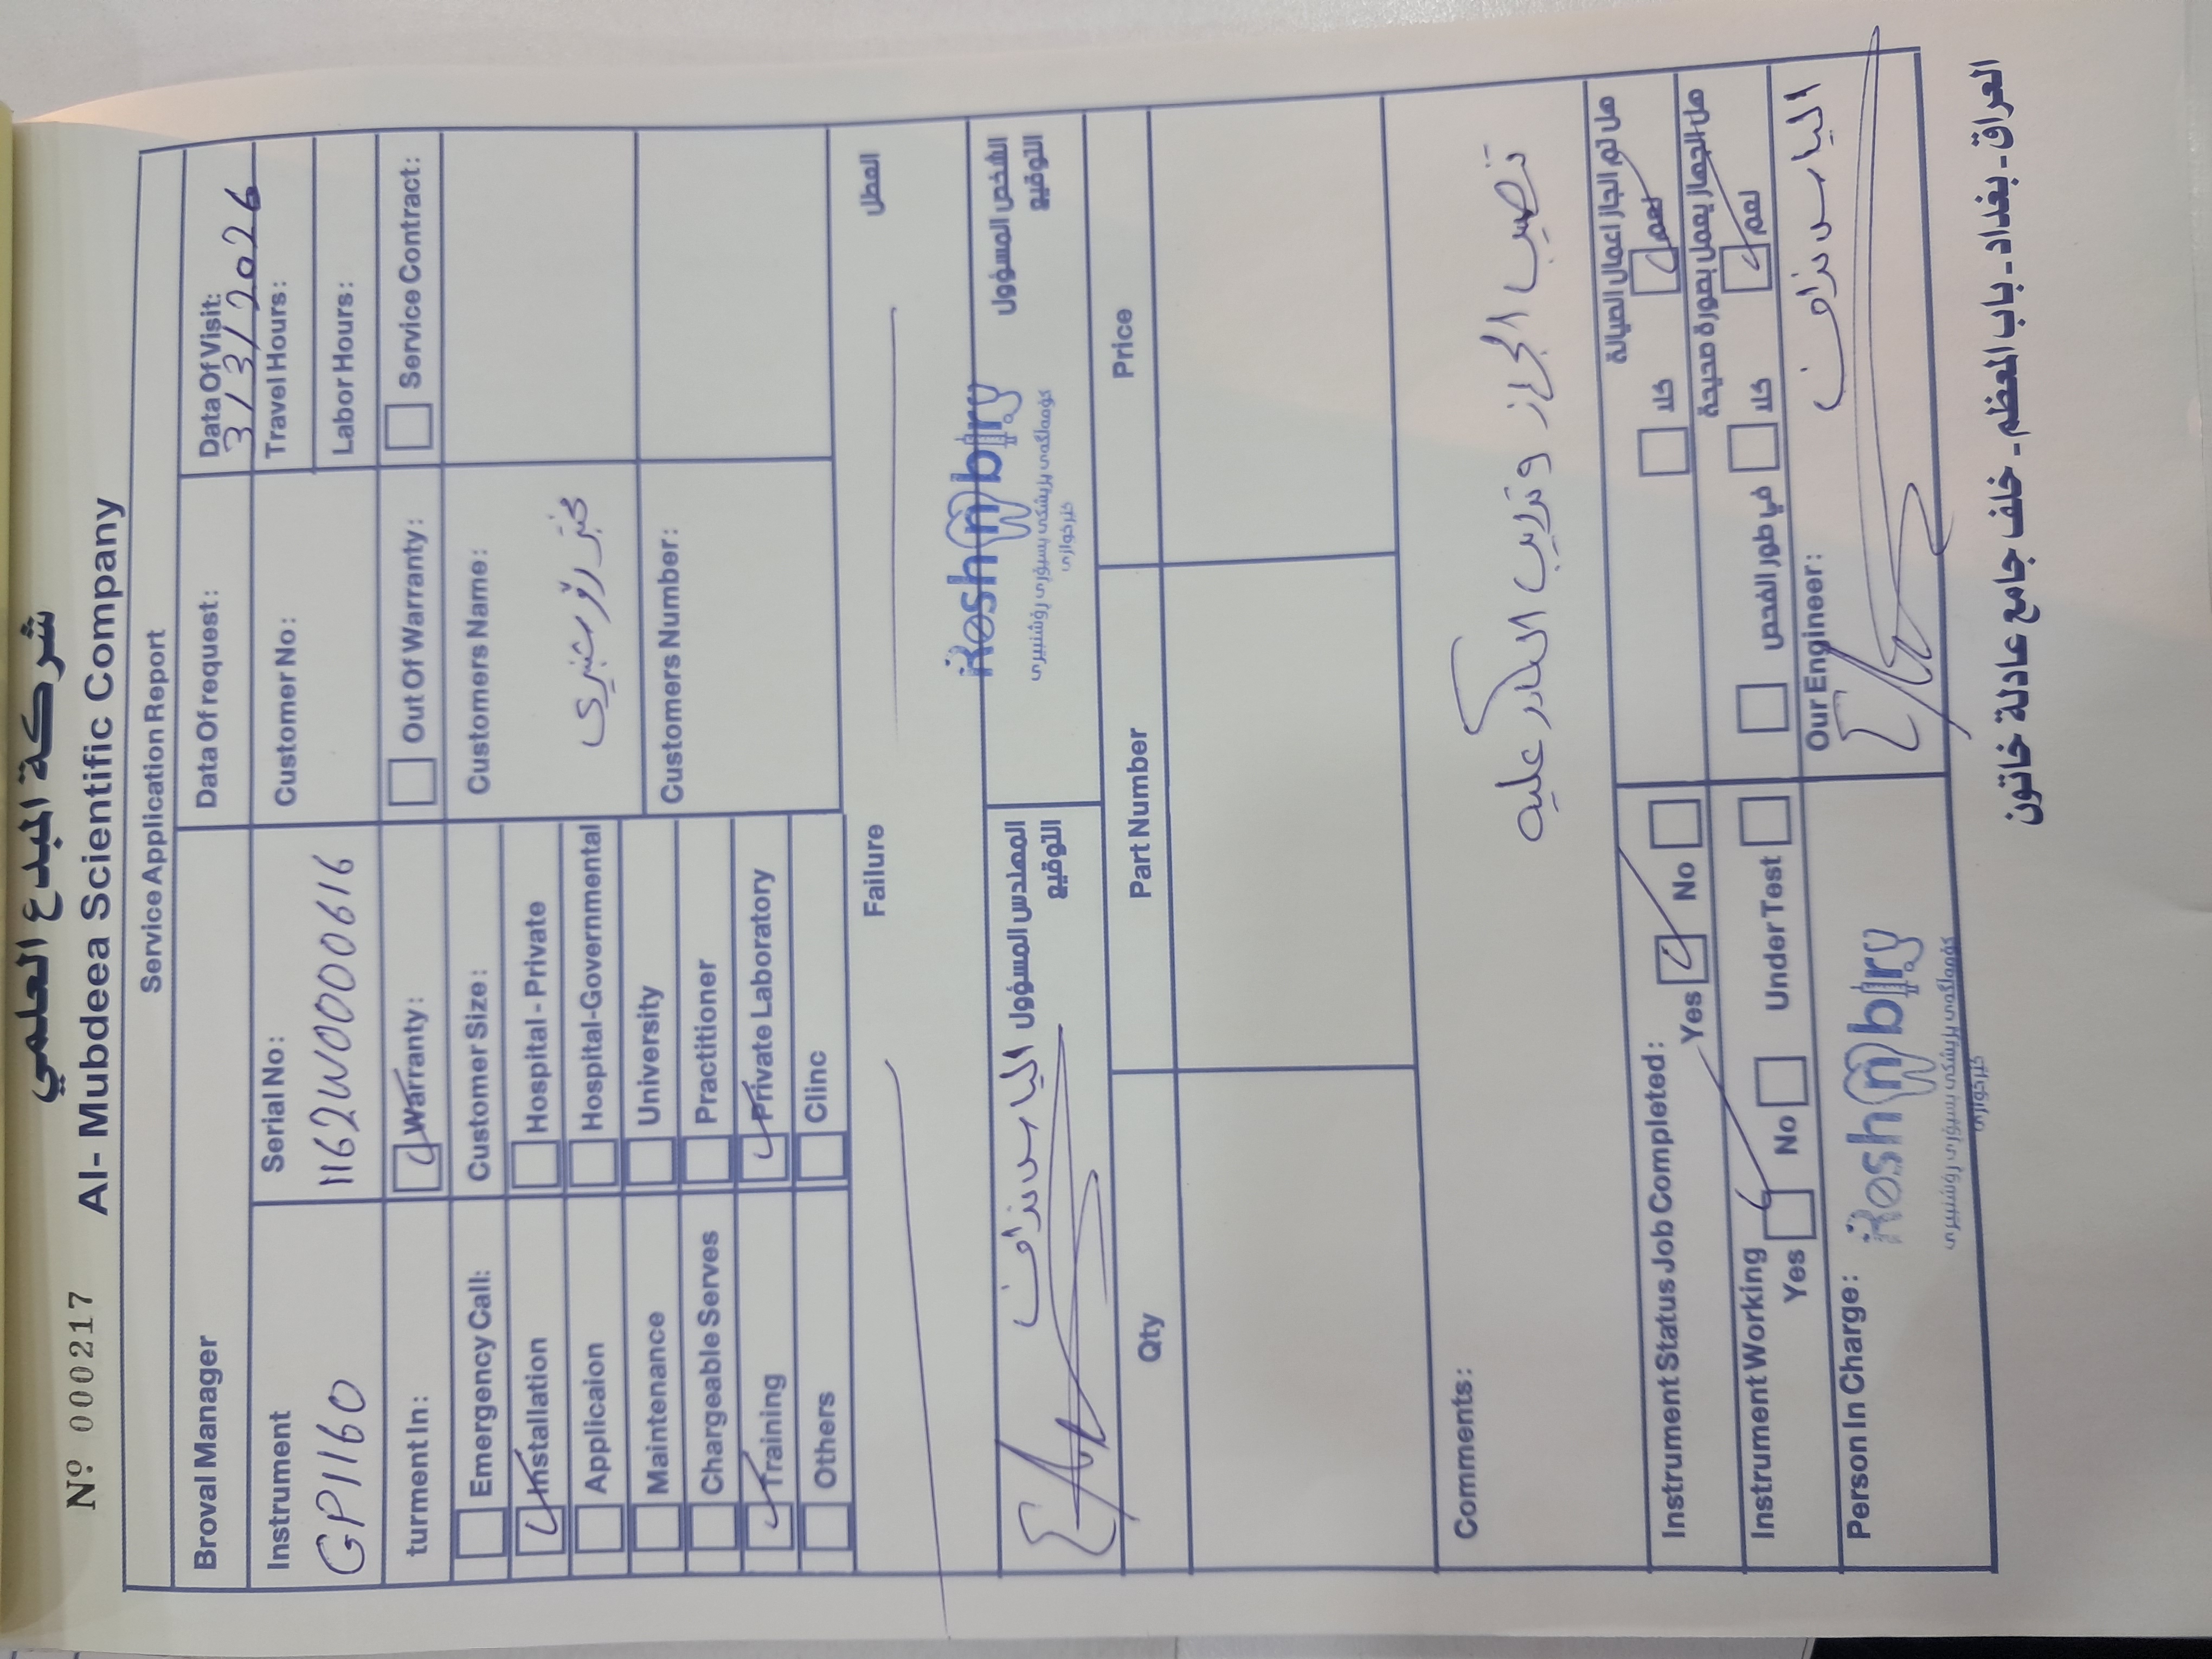 شركة المبدع العلمي
Nº 000217 Al- Mubdeea Scientific Company
Service Application Report
Broval Manager
Data Of request:
Data Of Visit:
3/3/2026
Instrument
GP1160
Serial No:
1162W000616
Customer No:
Travel Hours:
Labor Hours:
turment In:
Warranty:
Out Of Warranty:
Service Contract:
Emergency Call:
Installation
Applicaion
Maintenance
Chargeable Serves
Training
Others
Customer Size:
Hospital - Private
Hospital-Governmental
University
Practitioner
Private Laboratory
Clinc
Customers Name:
مختبر رۆشنبيرى
Customers Number:
Failure
العطل
المهندس المسؤول
التوقيع
الياس نزاف
الشخص المسؤول
التوقيع
Roshnbiry
كۆمەڵگەى پزيشكى پسپۆرى رۆشنبيرى
خێرخوازى
Qty
Part Number
Price
Comments:
تنصيب الجهاز وتدريب الكادر عليه
Instrument Status Job Completed:
Yes
No
هل تم انجاز اعمال الصيانة
كلا
نعم
Instrument Working
Yes
No
Under Test
هل الجهاز يعمل بصورة صحيحة
في طور الفحص
كلا
نعم
Person In Charge:
Roshnbiry
كۆمەڵگەى پزيشكى پسپۆرى رۆشنبيرى
خێرخوازى
Our Engineer:
الياس نزاف
العراق - بغداد - باب المعظم - خلف جامع عادلة خاتون